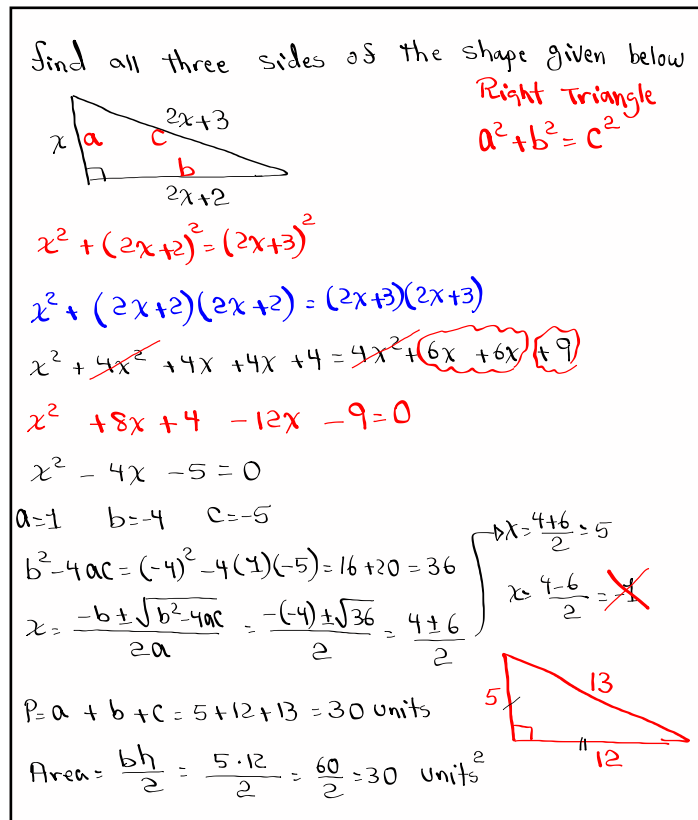 find all three sides of the shape given below
Right Triangle
a² + b² = c²
x a c 2x+3
b
2x+2
x² + (2x+2)² = (2x+3)²
x² + (2x+2)(2x+2) = (2x+3)(2x+3)
x² + 4x² + 4x + 4x + 4 = 4x² + 6x + 6x + 9
x² + 8x + 4 - 12x - 9 = 0
x² - 4x - 5 = 0
a=1 b=-4 c=-5
b²-4ac = (-4)² - 4(1)(-5) = 16 + 20 = 36
x = (-b ± √(b²-4ac))/2a = (-(-4) ± √36)/2 = (4 ± 6)/2
x = (4+6)/2 = 5
x = (4-6)/2 = -1
5 13
12
P = a + b + c = 5 + 12 + 13 = 30 units
Area = bh/2 = 5·12/2 = 60/2 = 30 units²